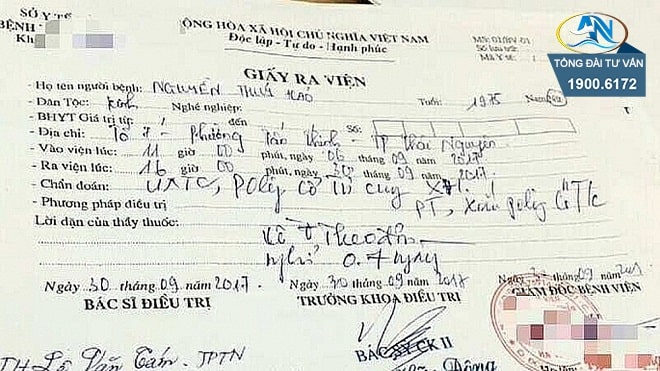 SỞ Y TẾ
BỆNH
CỘNG HÒA XÃ HỘI CHỦ NGHĨA VIỆT NAM
Độc lập - Tự do - Hạnh phúc
MS: 01/BV-01
Số lưu trữ
Mã Y tế
TỔNG ĐÀI TƯ VẤN
1900.6172
GIẤY RA VIỆN
- Họ tên người bệnh: NGUYỄN THUÝ HẢO
- Dân Tộc: Kinh Nghề nghiệp: Tuổi: 1975 Nam/Nữ
- BHYT Giá trị từ: đến Số:
- Địa chỉ: Tổ 7 - Phường Tân Thịnh - TP Thái Nguyên
- Vào viện lúc: 11 giờ 00 phút, ngày 06 tháng 09 năm 2017
- Ra viện lúc: 16 giờ 00 phút, ngày 30 tháng 09 năm 2017.
- Chẩn đoán: UXTC, Polip cổ TC
- Phương pháp điều trị PT, Xoắn polip CTC
Lời dặn của thầy thuốc:
nghỉ 0.7 ngày
Ngày 30 tháng 09 năm 2017 Ngày 30 tháng 09 năm 2017 Ngày tháng 09 năm 201
BÁC SĨ ĐIỀU TRỊ TRƯỞNG KHOA ĐIỀU TRỊ GIÁM ĐỐC BỆNH VIỆN
BÁC SỸ CK II
Lê Văn